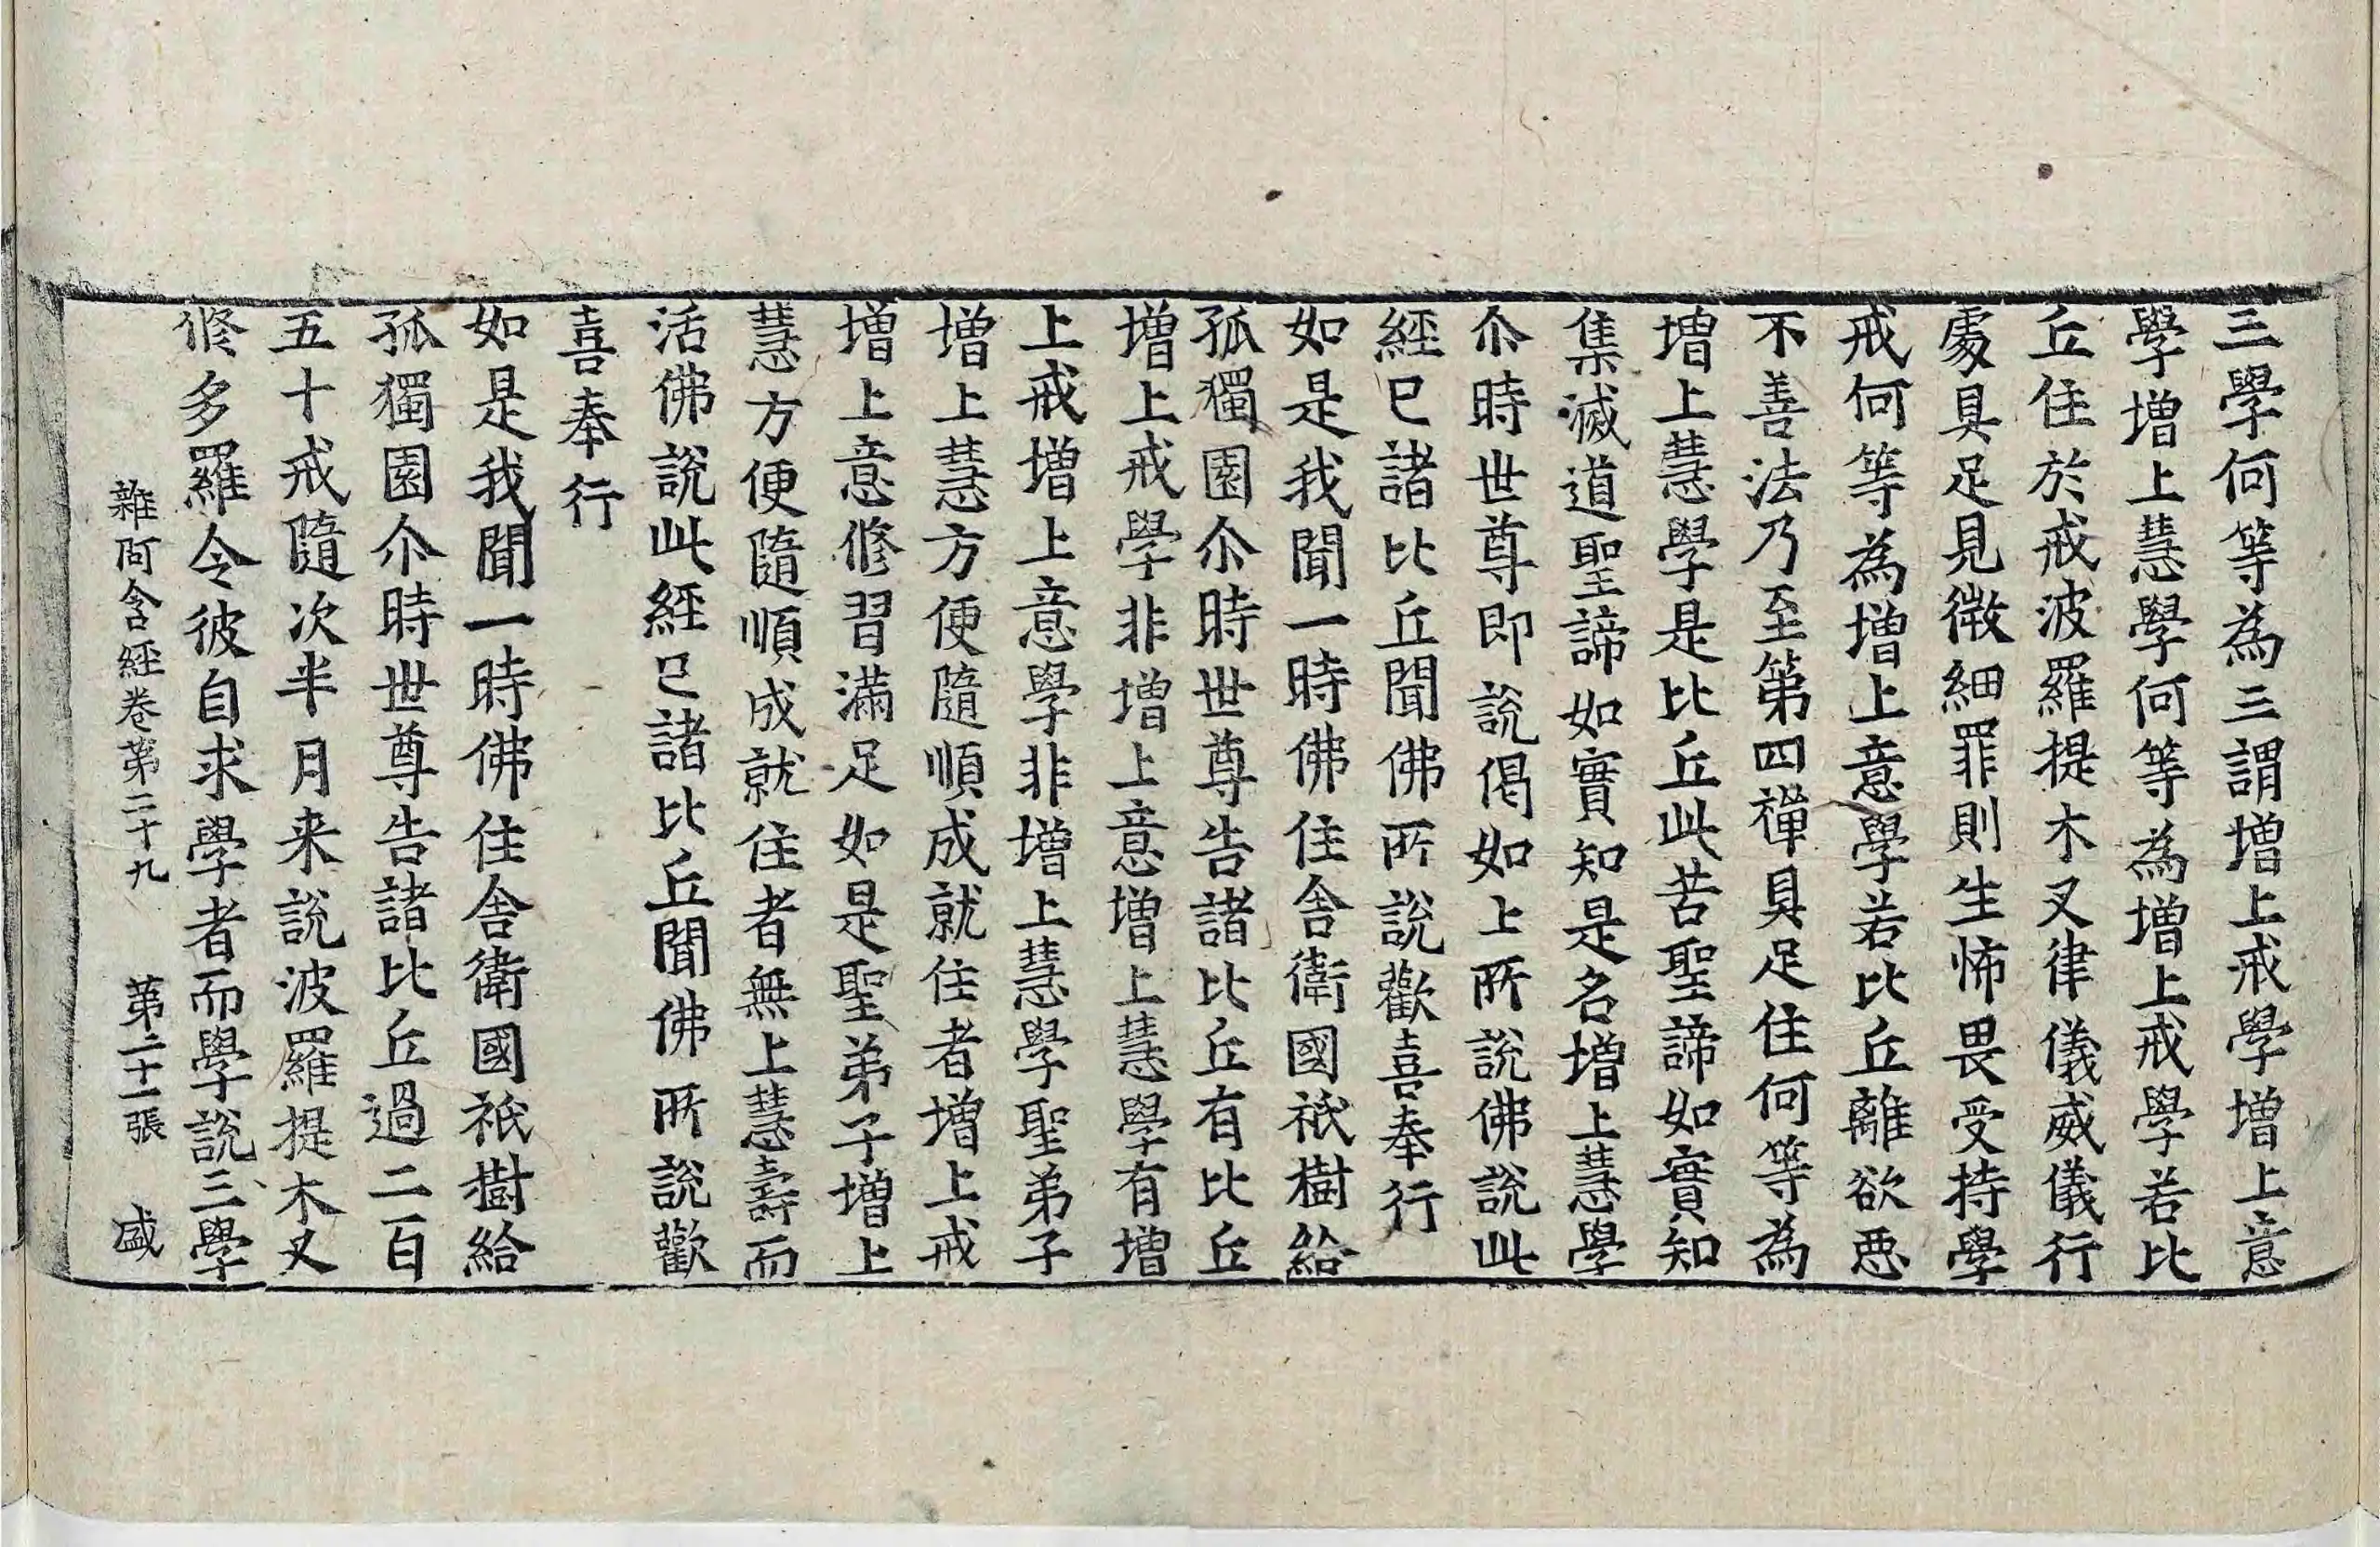 三學何等為三謂增上戒學增上意
學增上慧學何等為增上戒學若比
丘住於戒波羅提木叉律儀威儀行
處具足見微細罪則生怖畏受持學
戒何等為增上意學若比丘離欲惡
不善法乃至第四禪具足住何等為
增上慧學是比丘此苦聖諦如實知
集滅道聖諦如實知是名增上慧學
尒時世尊即說偈如上所說佛說此
經已諸比丘聞佛所說歡喜奉行
如是我聞一時佛住舍衛國祇樹給
孤獨園尒時世尊告諸比丘有比丘
增上戒學非增上意增上慧學有增
上戒增上意學非增上慧學聖弟子
增上慧方便隨順成就住者增上戒
增上意修習滿足如是聖弟子增上
慧方便隨順成就住者無上慧壽而
活佛說此經已諸比丘聞佛所說歡
喜奉行
如是我聞一時佛住舍衛國祇樹給
孤獨園尒時世尊告諸比丘過二百
五十戒隨次半月来說波羅提木叉
修多羅令彼自求學者而學說三學
雜阿含經卷第二十九 第二十一張 盛